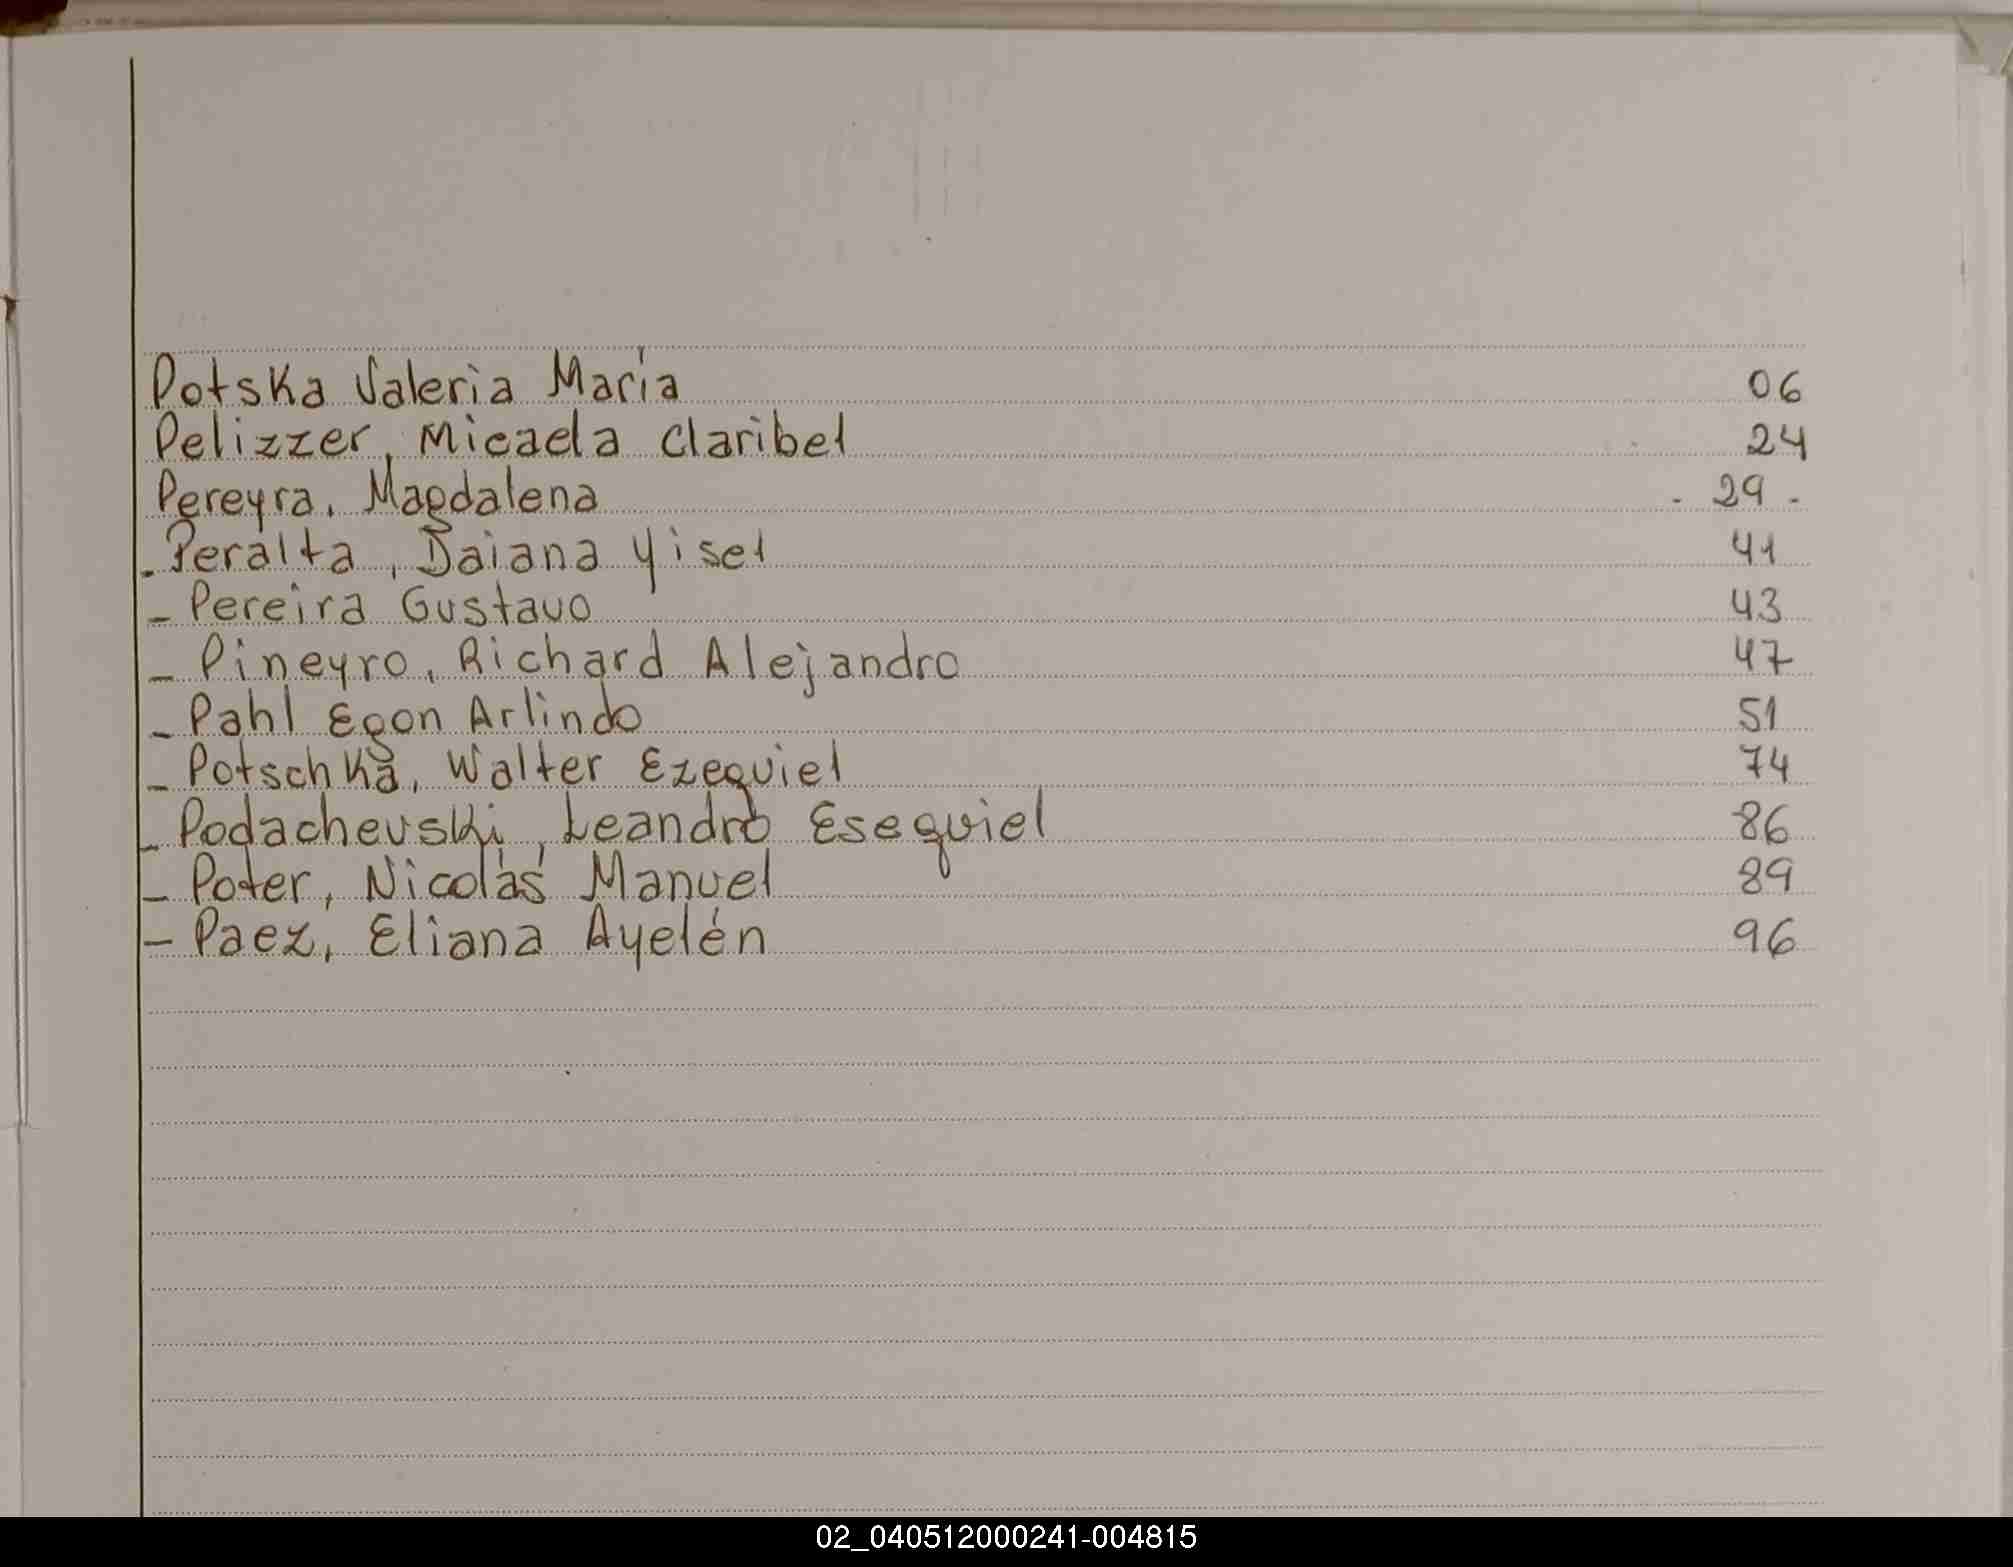 Potska Valeria María 06
Pelizzer, Micaela Claribel 24
Pereyra, Magdalena - 29 -
- Peralta, Daiana Yisel 41
- Pereira Gustavo 43
- Pineyro, Richard Alejandro 47
- Pahl Egon Arlindo 51
- Potschka, Walter Ezequiel 74
- Podachevski, Leandro Esequiel 86
- Poter, Nicolás Manuel 89
- Paez, Eliana Ayelén 96
02_040512000241-004815